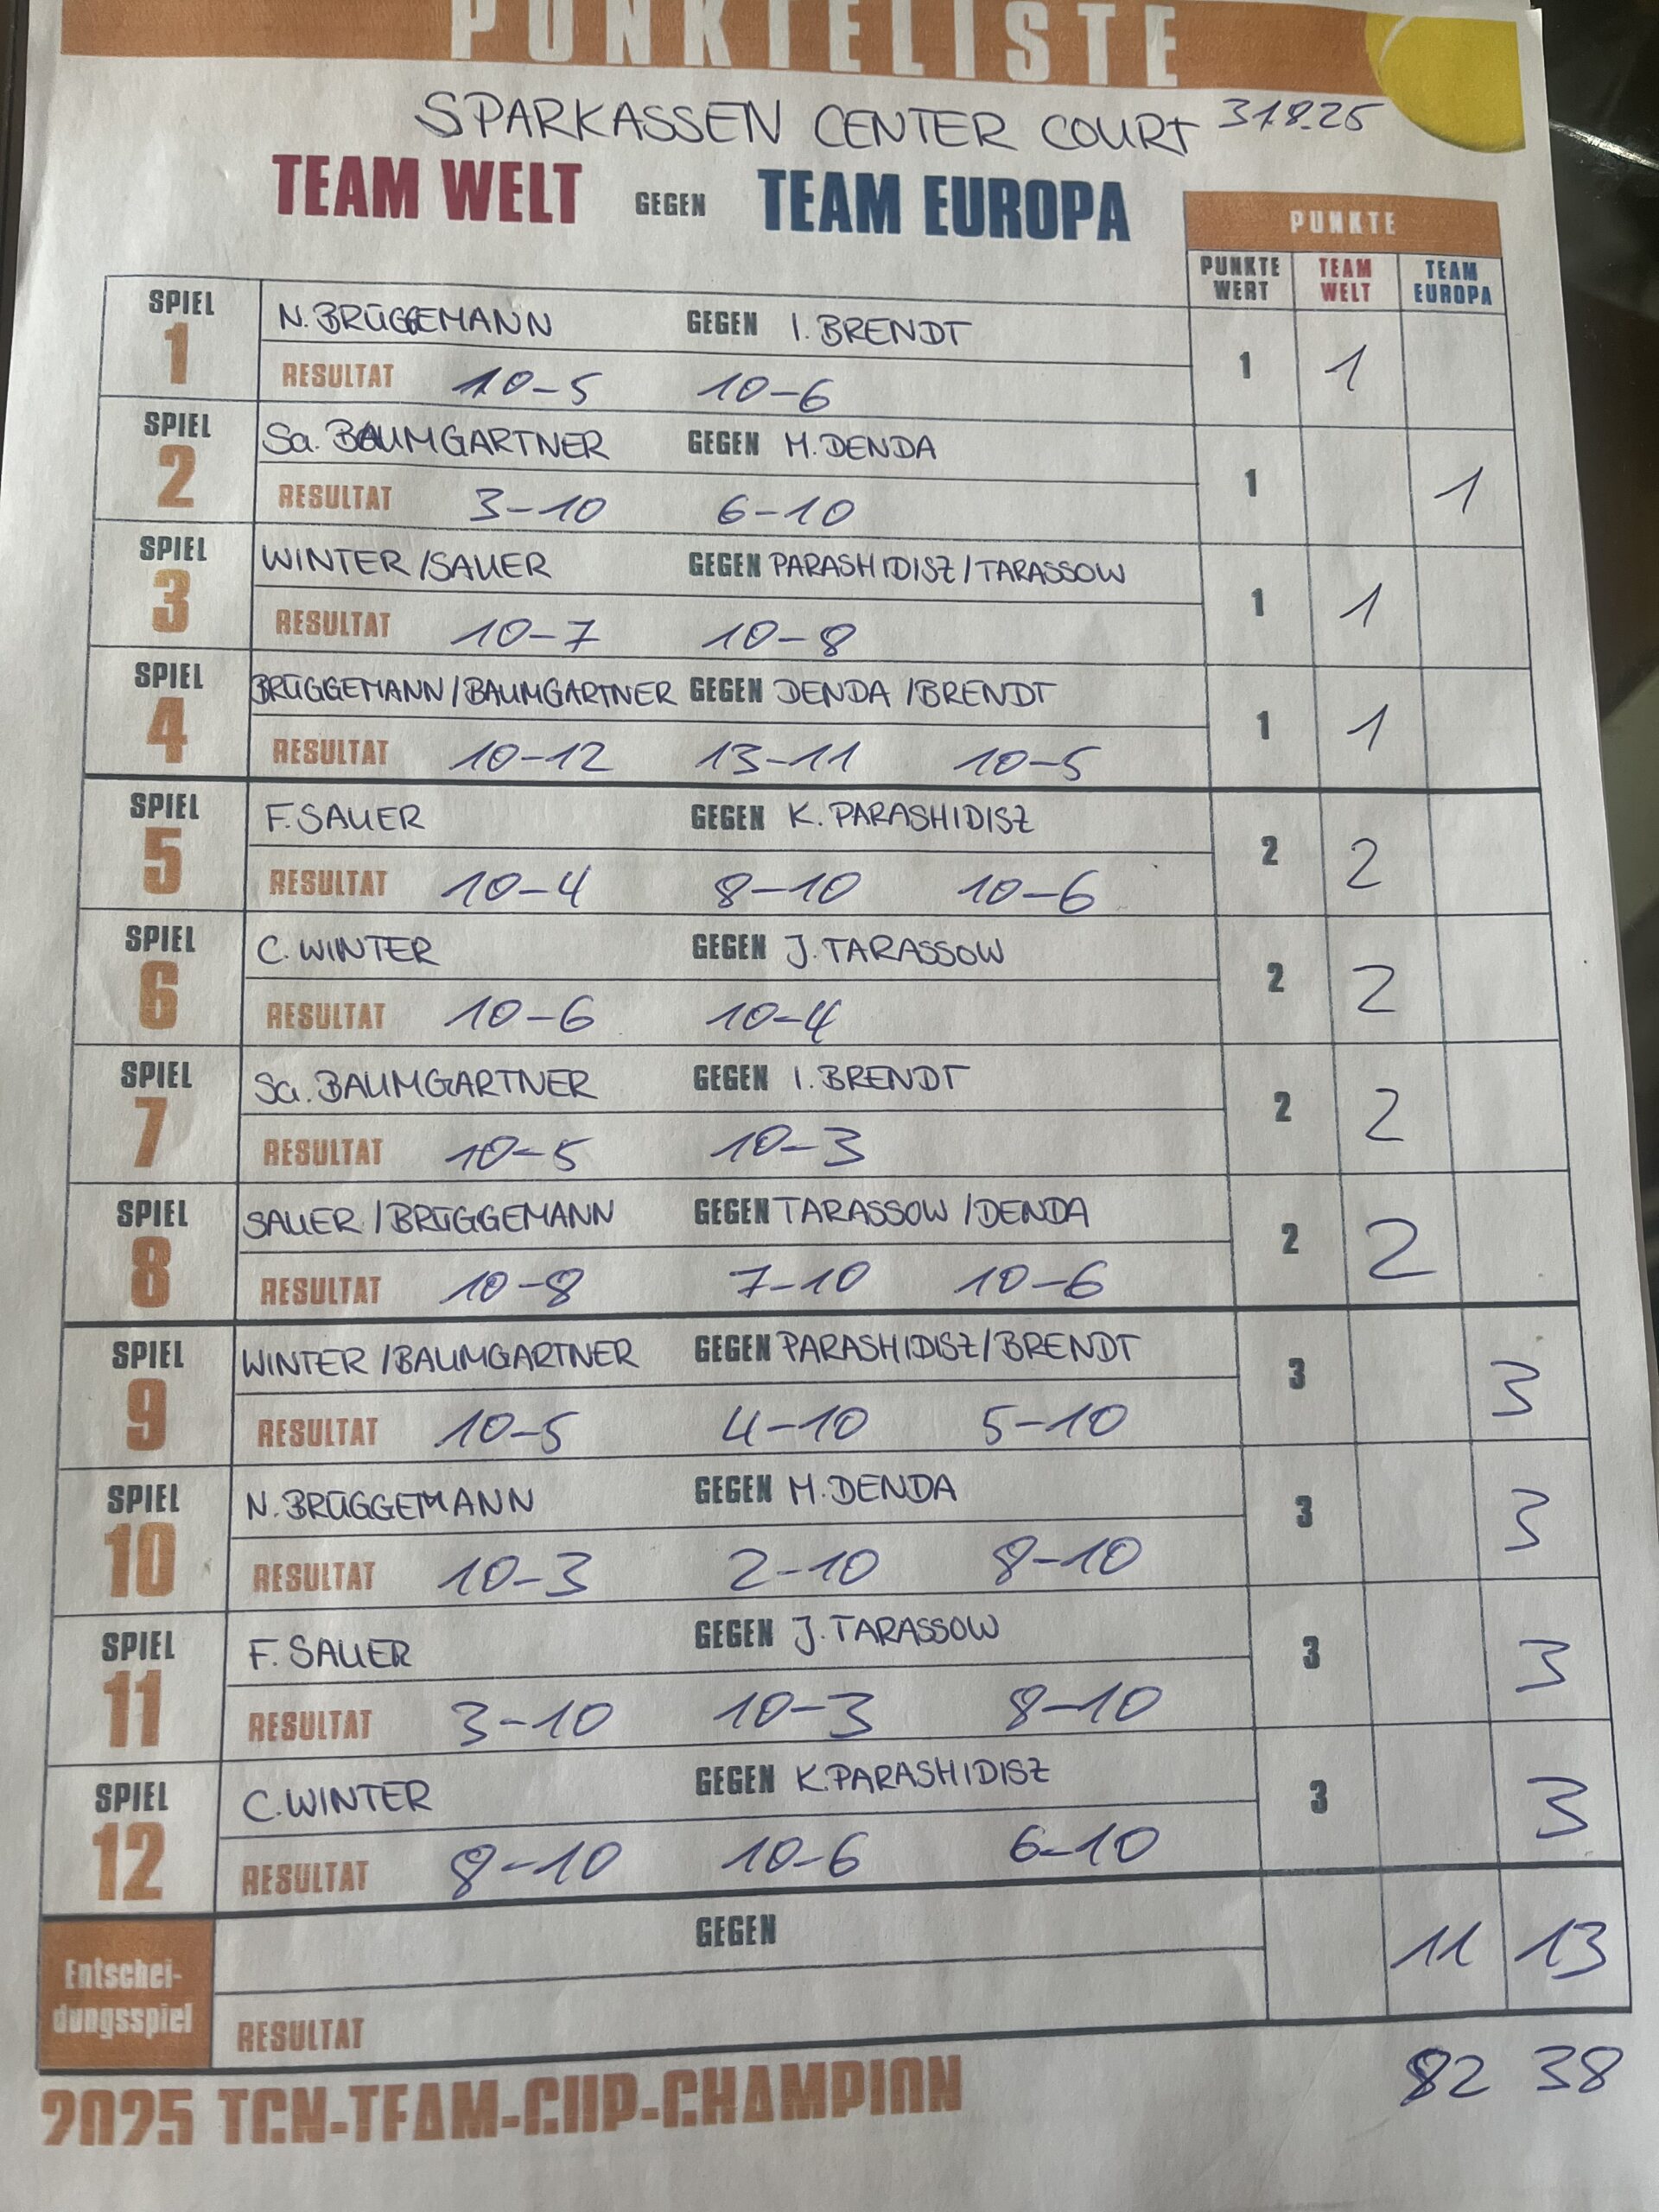 PUNKTELISTE
SPARKASSEN CENTER COURT 31.8.25
TEAM WELT GEGEN TEAM EUROPA
PUNKTE
PUNKTE WERT TEAM WELT TEAM EUROPA
SPIEL 1 N. BRÜGGEMANN GEGEN I. BRENDT
RESULTAT 10-5 10-6 1 1
SPIEL 2 Sa. BAUMGARTNER GEGEN M. DENDA
RESULTAT 3-10 6-10 1 1
SPIEL 3 WINTER/SAUER GEGEN PARASHIDISZ/TARASSOW
RESULTAT 10-7 10-8 1 1
SPIEL 4 BRÜGGEMANN/BAUMGARTNER GEGEN DENDA/BRENDT
RESULTAT 10-12 13-11 10-5 1 1
SPIEL 5 F. SAUER GEGEN K. PARASHIDISZ
RESULTAT 10-4 8-10 10-6 2 2
SPIEL 6 C. WINTER GEGEN J. TARASSOW
RESULTAT 10-6 10-4 2 2
SPIEL 7 Sa. BAUMGARTNER GEGEN I. BRENDT
RESULTAT 10-5 10-3 2 2
SPIEL 8 SAUER/BRÜGGEMANN GEGEN TARASSOW/DENDA
RESULTAT 10-8 7-10 10-6 2 2
SPIEL 9 WINTER/BAUMGARTNER GEGEN PARASHIDISZ/BRENDT
RESULTAT 10-5 4-10 5-10 3 3
SPIEL 10 N. BRÜGGEMANN GEGEN M. DENDA
RESULTAT 10-3 2-10 8-10 3 3
SPIEL 11 F. SAUER GEGEN J. TARASSOW
RESULTAT 3-10 10-3 8-10 3 3
SPIEL 12 C. WINTER GEGEN K. PARASHIDISZ
RESULTAT 8-10 10-6 6-10 3 3
Entschei-
dungsspiel GEGEN 11 13
RESULTAT
82 38
2025 TCN-TEAM-CUP-CHAMPION